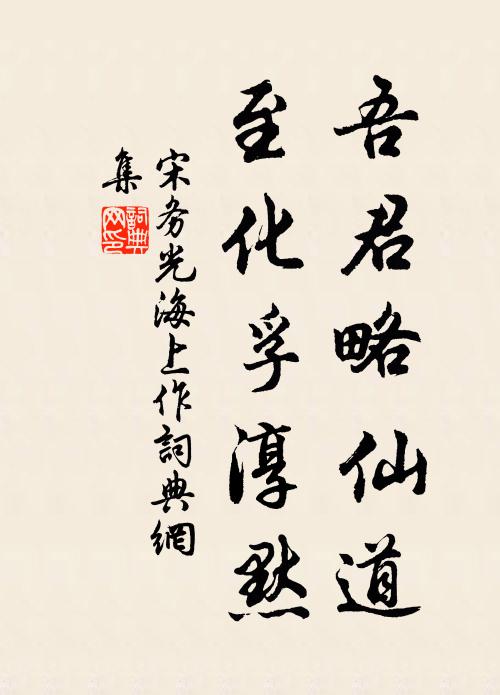 吾君略仙道
至化孚淳默
宋务光海上作詞典網
集
詞典网印